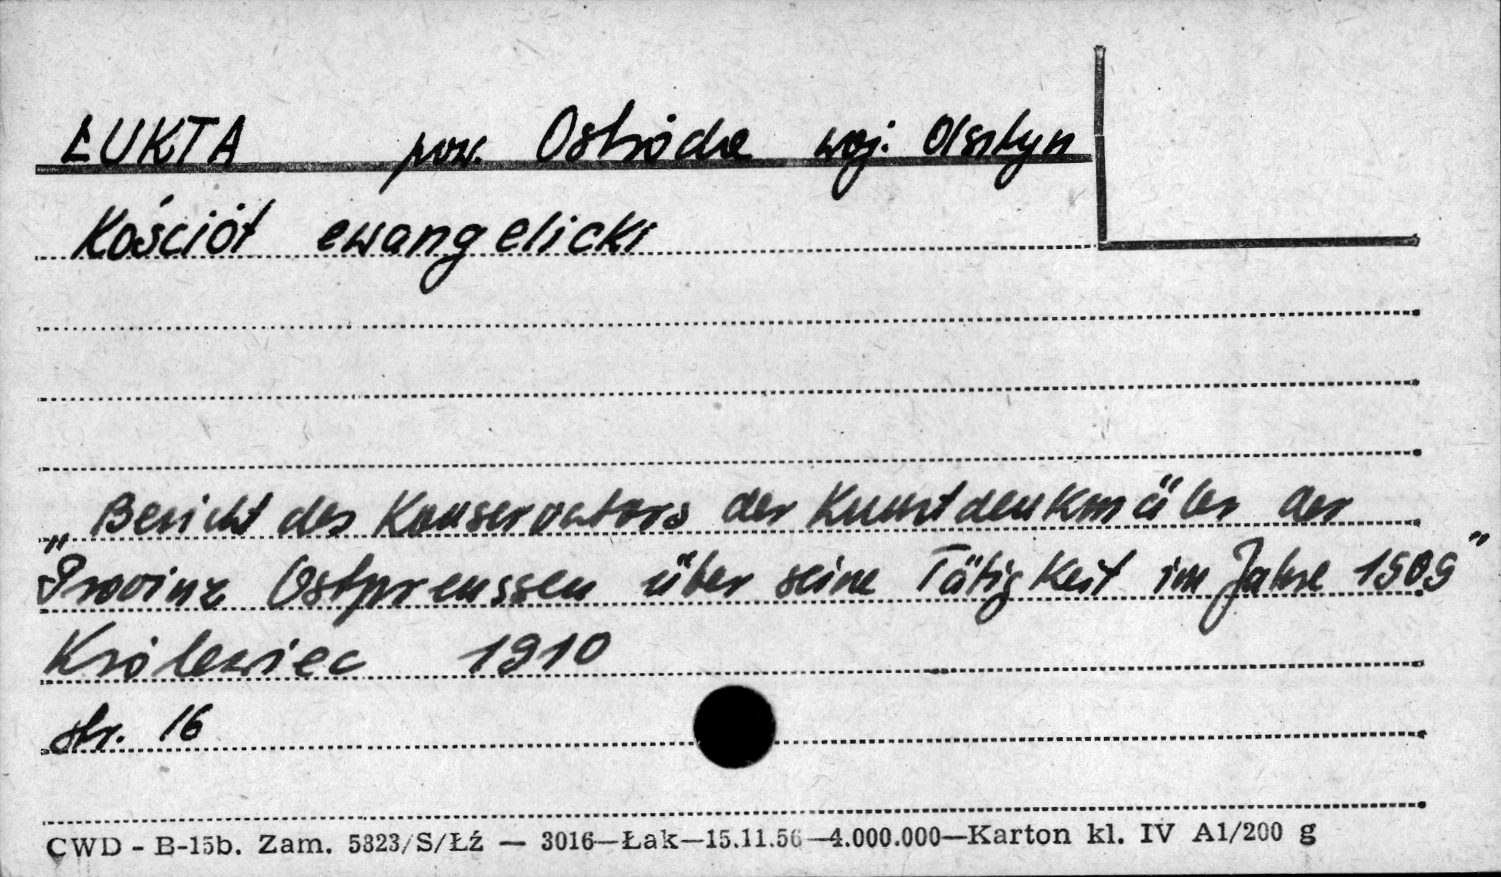 ŁUKTA pow. Ostróda woj. Olsztyn
Kościół ewangelicki
„Bericht des Konservators der Kunstdenkmäler der
Provinz Ostpreussen über seine Tätigkeit im Jahre 1909”
Królewiec 1910
str. 16
CWD - B-15b. Zam. 5323/S/Łź — 3016—Łak—15.11.56—4.000.000—Karton kl. IV A1/200 g